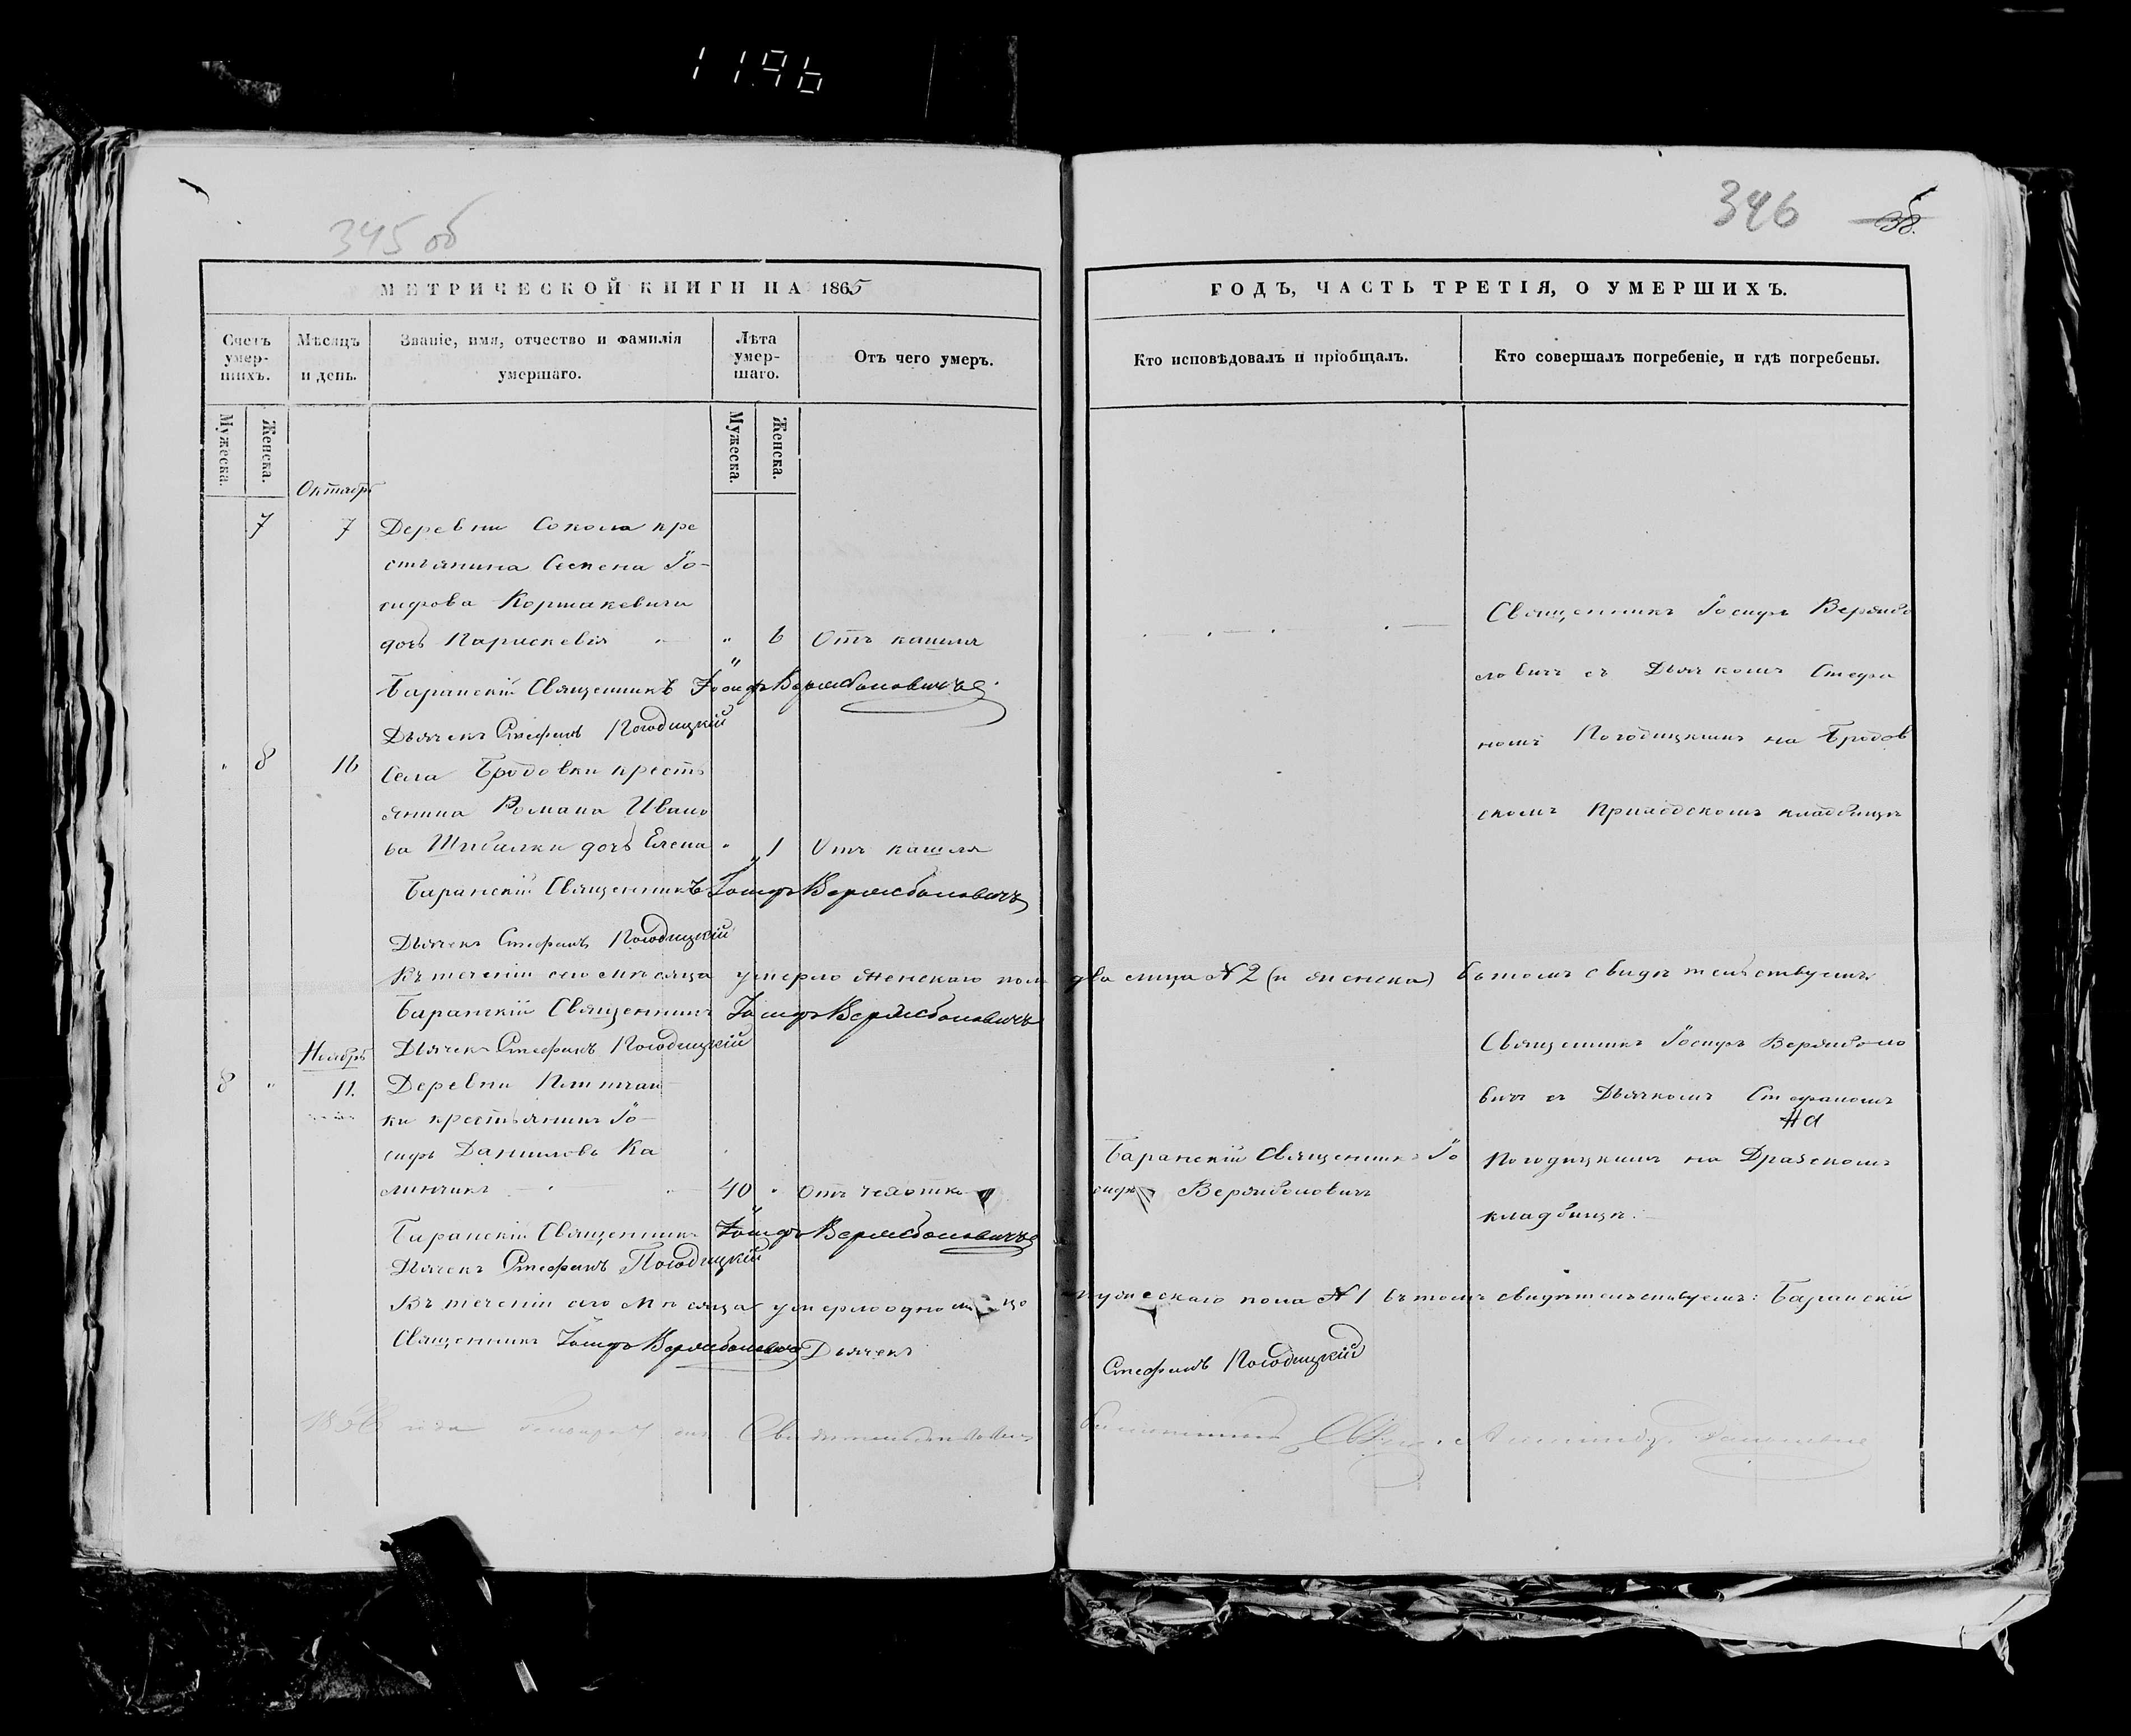 1196
345 об
346
38.
МЕТРИЧЕСКОЙ КНИГИ НА 1865
ГОДЪ, ЧАСТЬ ТРЕТІЯ, О УМЕРШИХЪ.
Счетъ умер-шихъ.
Мѣсяцъ и день.
Званіе, имя, отчество и фамилія умершаго.
Лѣта умер-шаго.
Отъ чего умеръ.
Кто исповѣдовалъ и пріобщалъ.
Кто совершалъ погребеніе, и гдѣ погребены.
Мужеска.
Женска.
Мужеска.
Женска.
Октябрь
7 7 Деревни Сокола кре
стьянина Семена Іо-
сифова Коршакевича
дочь Параскевія " 6 Отъ кашля
Священникъ Іосифъ Вержбо
ловичъ съ Дьячкомъ Стефа
номъ Погодицкимъ на Бродов
скомъ Приходскомъ кладбищѣ
Баранскій Священникъ Іосифъ Вержболовичъ
Дьячекъ Стефанъ Погодицкій
" 8 16 Села Бродовки кресть
янина Романа Ивано
ва Шибалки дочь Елена " 1 Отъ кашля
Баранскій Священникъ Іосифъ Вержболовичъ
Дьячекъ Стефанъ Погодицкій
Въ теченіи сего мѣсяца умерло женскаго пола два лица № 2 (и женска) въ томъ свидѣтельствуемъ
Баранскій Священникъ Іосифъ Вержболовичъ
Ноябрь Дьячекъ Стефанъ Погодицкій
8 " 11. Деревни
ки крестьянинъ Іо-
сифъ Даниловъ Ка
линчикъ 40 " Отъ чахотки
Баранскій Священникъ Іо
сифъ Вержболовичъ
Священникъ Іосифъ Вержболо
вичъ съ Дьячкомъ Стефаномъ
на
Погодицкимъ на Драчскомъ
кладбищѣ.
Баранскій Священникъ Іосифъ Вержболовичъ
Дьячекъ Стефанъ Погодицкій
Въ теченіи сего мѣсяца умерло одно лицо мужескаго пола № 1 въ томъ свидѣтельствуемъ: Баранскій
Священникъ Іосифъ Вержболовичъ Дьячекъ
Стефанъ Погодицкій
года